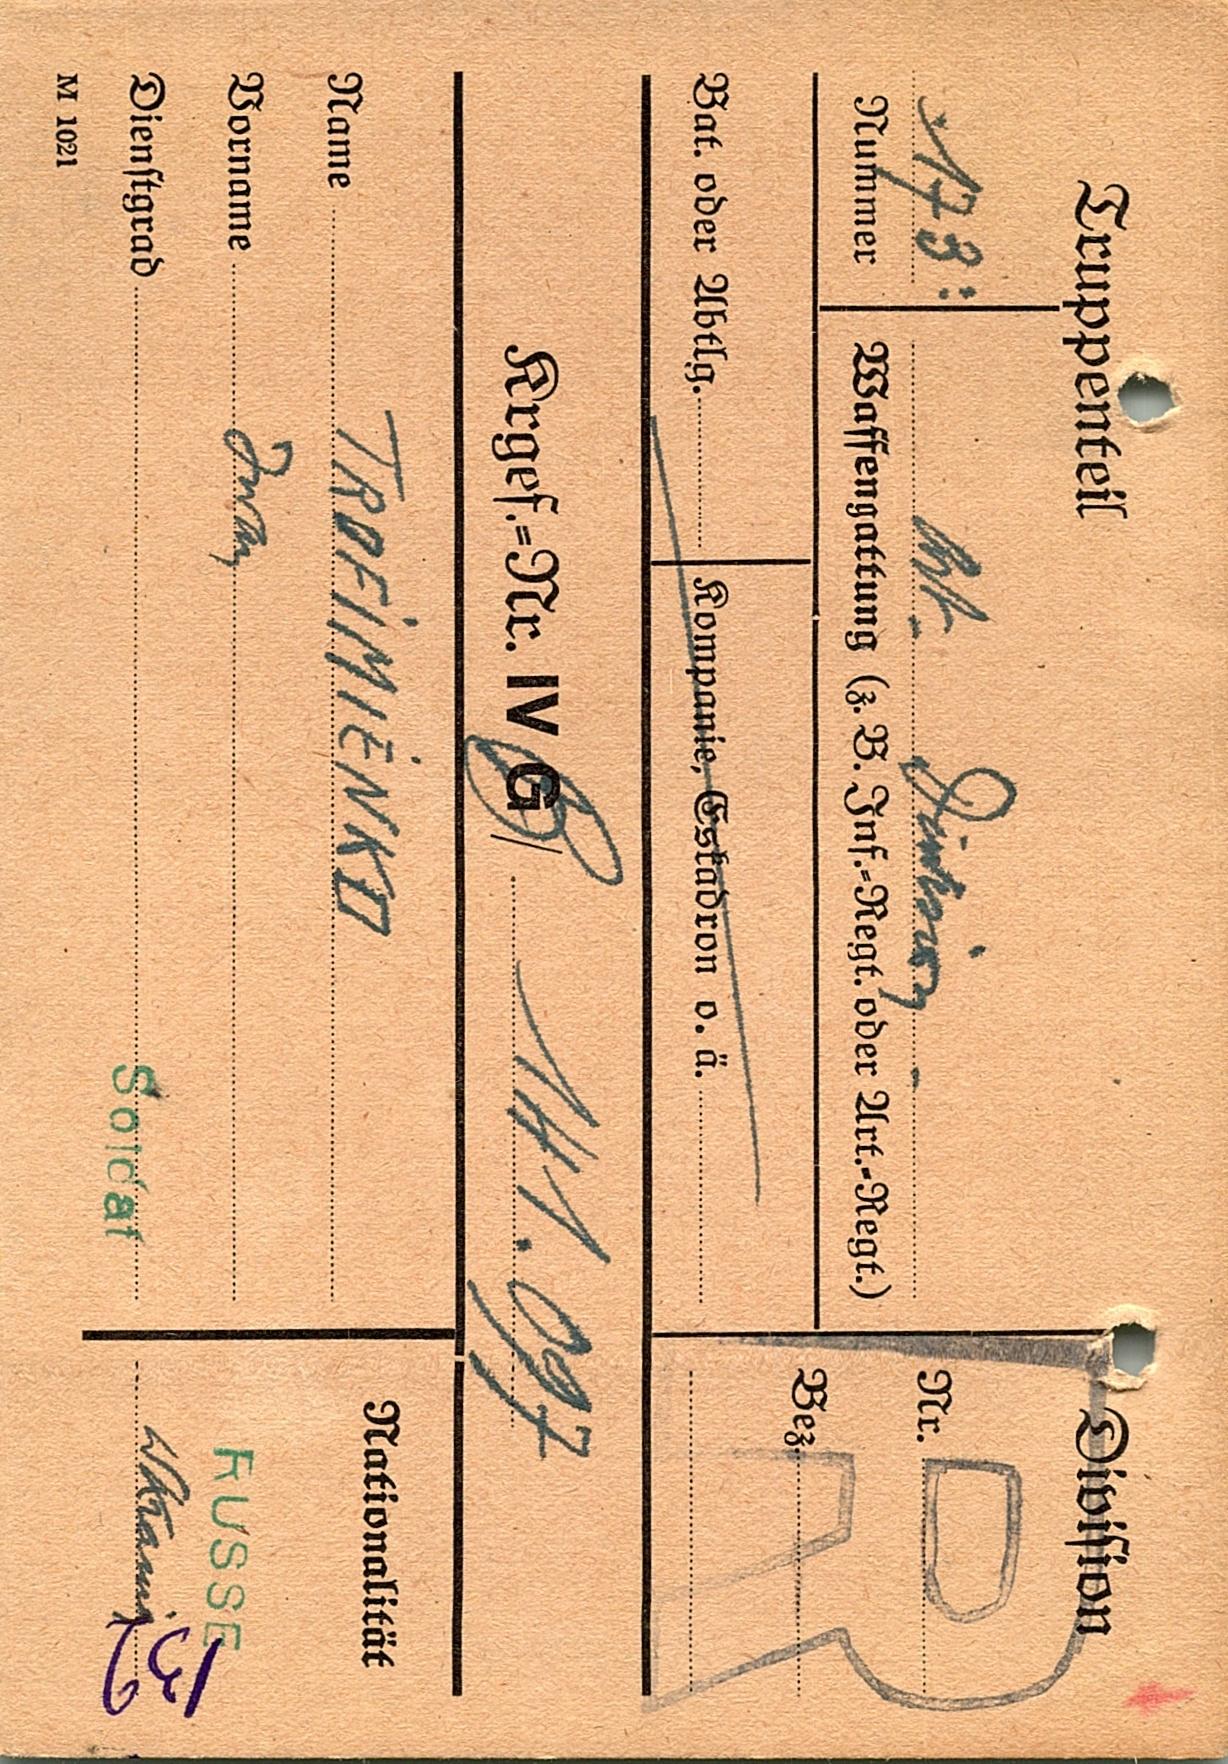 Truppenteil
Division
173:
Nummer
Waffengattung (z. B. Inf.=Regt. oder Art.=Regt.)
Nr.
Bez.
R
Bat. oder Abtlg.
Kompanie, Eskadron o. ä.
Krgef.=Nr. IV G B/ 141.097
Name TROFIMIENKO
Nationalität
Vorname Iwan
RUSSE
Dienstgrad Soldat
Ukraine
139
M 1021